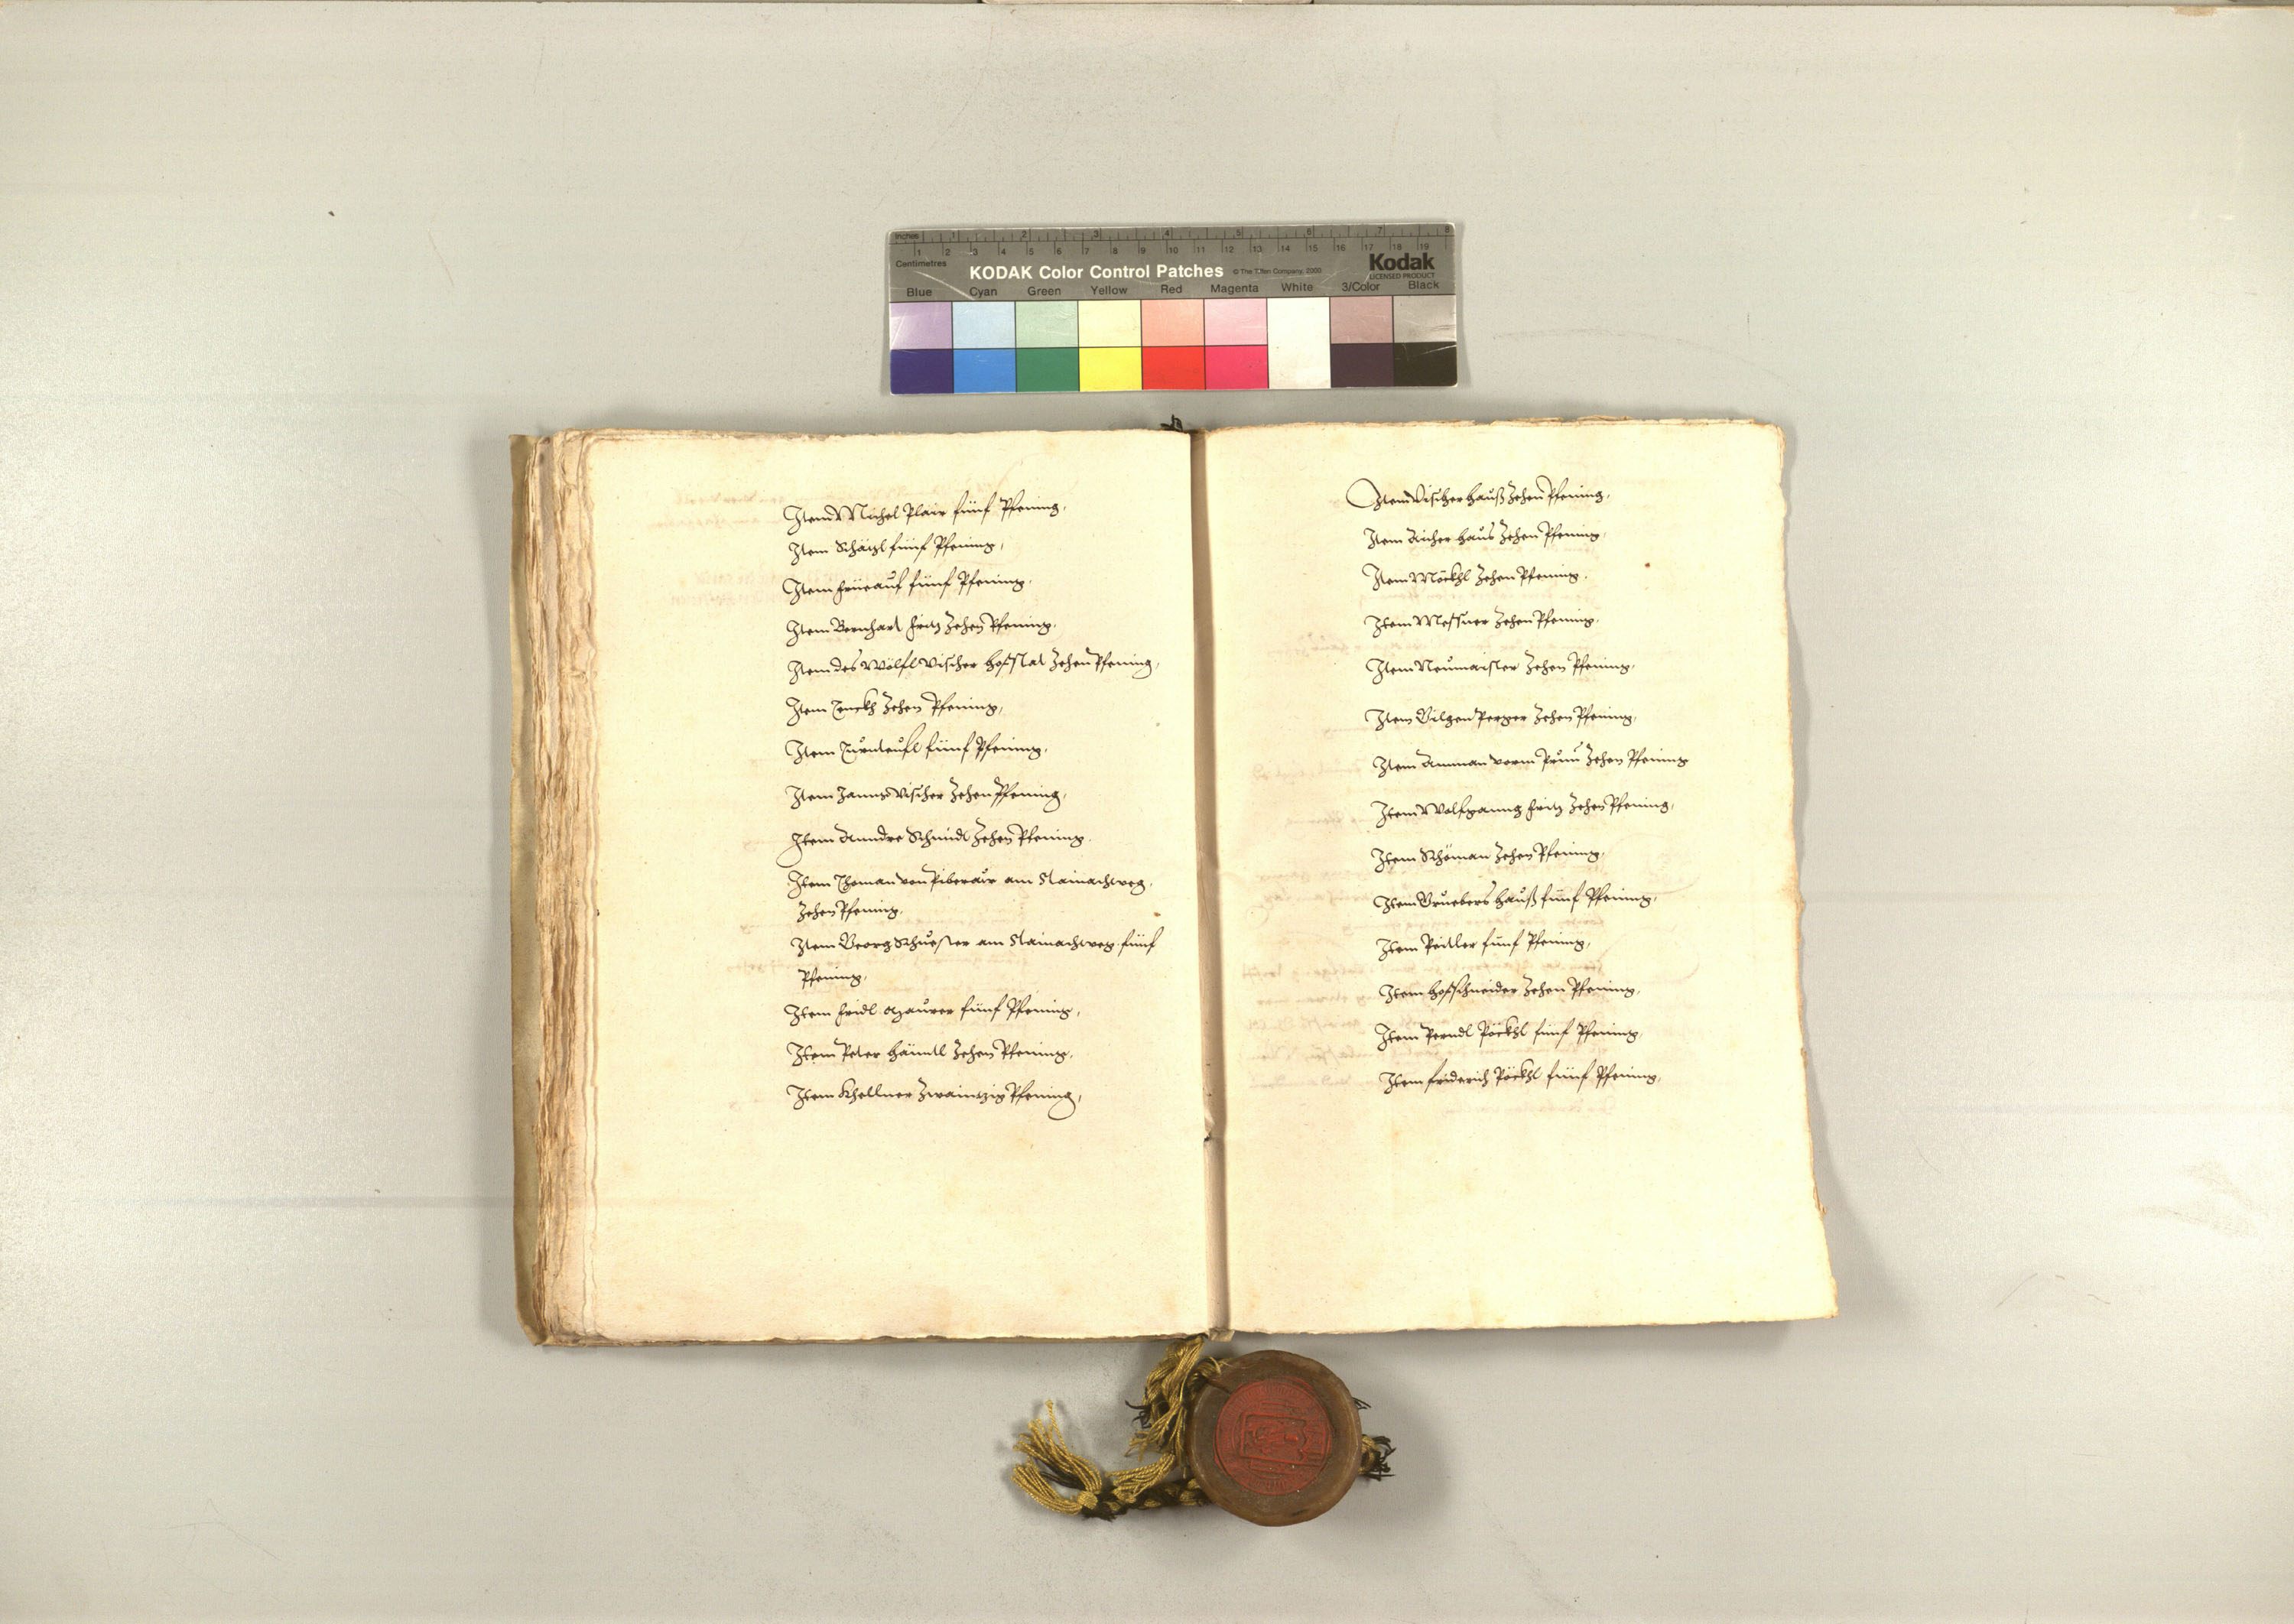 Inches 1 2 3 4 5 6 7 8
1 2 3 4 5 6 7 8 9 10 11 12 13 14 15 16 17 18 19
Centimetres
KODAK Color Control Patches © The Tiffen Company, 2000 Kodak
LICENSED PRODUCT
Blue Cyan Green Yellow Red Magenta White 3/Color Black
Item Michel Plair fünf Pfening,
Item Schätzl fünf Pfening,
Item früeauf fünf Pfening,
Item Bernhart fritz Zehen Pfening,
Item des Wölfl Vischer hofstat Zehen Pfening,
Item Zehen Pfening,
Item Turnteufl fünf Pfening,
Item Vischer Zehen Pfening,
Item Anndre Schmidt Zehen Pfening.
Item Thoman von Piberair am Stainachweg,
Zehen Pfening,
Item Georg Schuester am Stainachweg fünf
Pfening,
Item fridl fünf Pfening,
Item Peter Häintl Zehen Pfening,
Item Khellner Zwaintzig Pfening,
Item Vischer hauß Zehen Pfening,
Item Aicher haus Zehen Pfening,
Item Möckhl Zehen Pfening,
Item Messner Zehen Pfening,
Item Neumaister Zehen Pfening,
Item Gilgen Perger Zehen Pfening,
Item Amman vorm Prun Zehen Pfening
Item Wolfganng fritz Zehen Pfening,
Item Schöman Zehen Pfening,
Item Gruebers hauß fünf Pfening,
Item Peitler fünf Pfening,
Item hofschneider Zehen Pfening,
Item Perndl Pöckhl fünf Pfening,
Item friderich Pöckhl fünf Pfening,